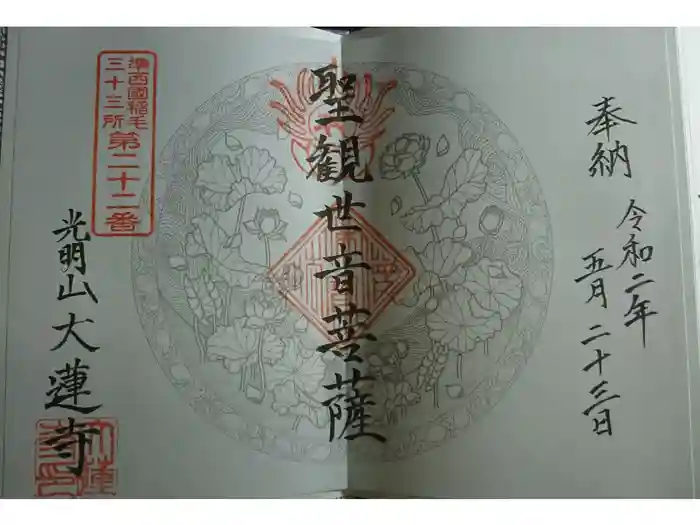 奉納
令和二年
五月二十三日
聖観世音菩薩
準西國稲毛
三十三所第二十二番
光明山大蓮寺